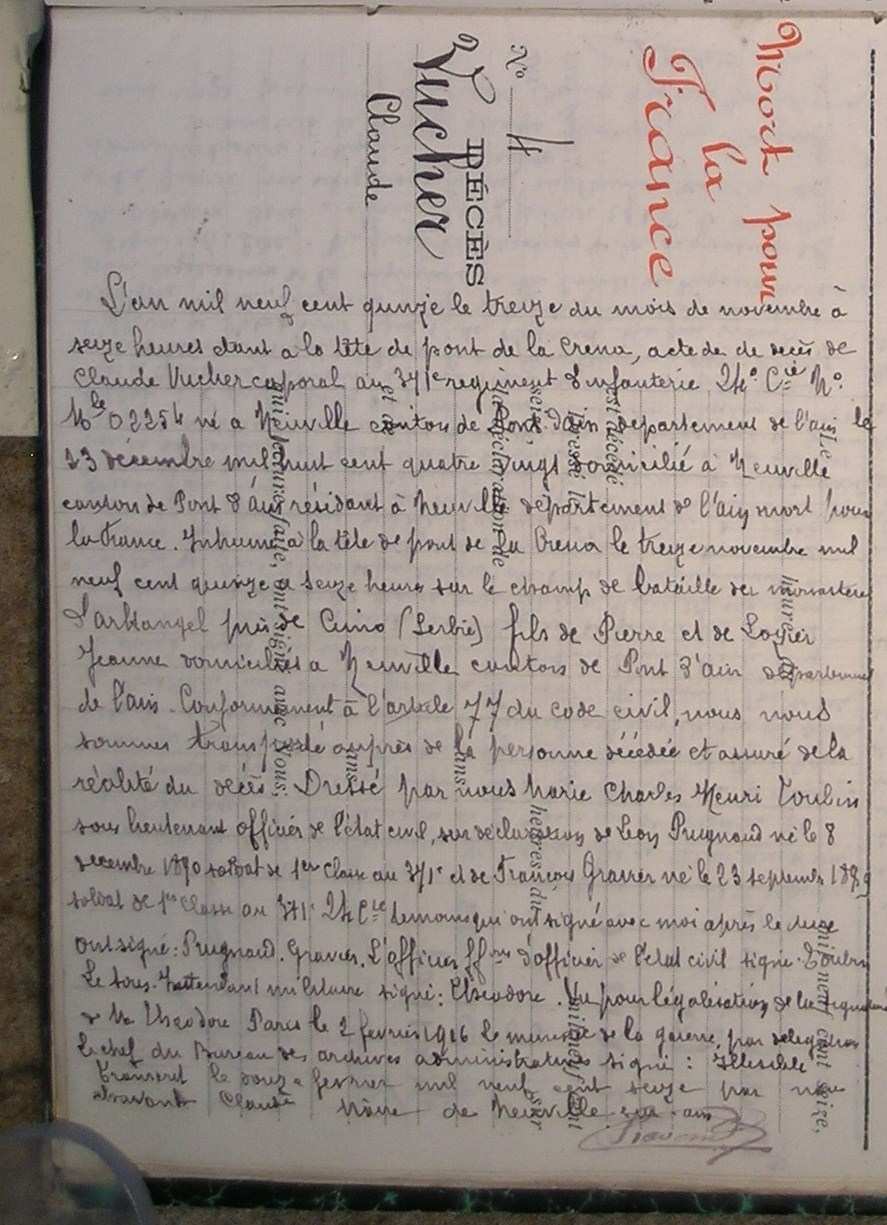 Mort pour
la
France
N° 4
DÉCÈS
Vucher
Claude
L'an mil neuf cent quinze le treize du mois de novembre à
seize heures étant à la tête de pont de la Crena, acte de de décès de
Claude Vucher caporal au 371e regiment d'infanterie 24e Cie N°
Mle 02254 né a Neuville canton de Pont d'ain departement de l'ain le
23 décembre mil huit cent quatre vingt domicilié à Neuville
canton de Pont d'ain résidant à Neuville département de l'ain mort pour
la France. Inhumé à la tête de pont de la Crena le treize novembre mil
neuf cent quinze a seize heures sur le champ de bataille des monastère
d'arkangel près de (Serbie) fils de Pierre et de
Jeanne domiciliés a Neuville canton de Pont d'ain departement
de l'ain. Conformement à l'article 77 du code civil, nous nous
sommes transporté auprès de la personne décédée et assuré de la
réalité du décès. Dressé par nous Marie Charles Henri Toubin
sous lieutenant officier de l'état civil, sur déclaration de Leon Prugnaud né le 8
decembre 1890 soldat de 1er Classe au 371e et de François Gravier né le 23 septembre
soldat de 1re Classe au 371e 24e Cie temoins qui ont signé avec moi après lecture
ont signé: Prugnaud. Gravier. L'officier ff ons d'officier de l'état civil signé: Toubin
Le sous-Intendant militaire signé: Theodore. Vu pour légalisation de la signature
de Mr Theodore Paris le 2 fevrier 1916 le ministre de la guerre, par delegation
Le chef du Bureau des archives administratives signé: Illisible
Transcrit le douze fevrier mil neuf cent seize par nous
Claude Maire de Neuville sur ain
est décédé
Dressé le
la déclaration de
lecture faite, ont signé avec Nous,
heures du
mil neuf cent seize,
heures
sur
et de
dans